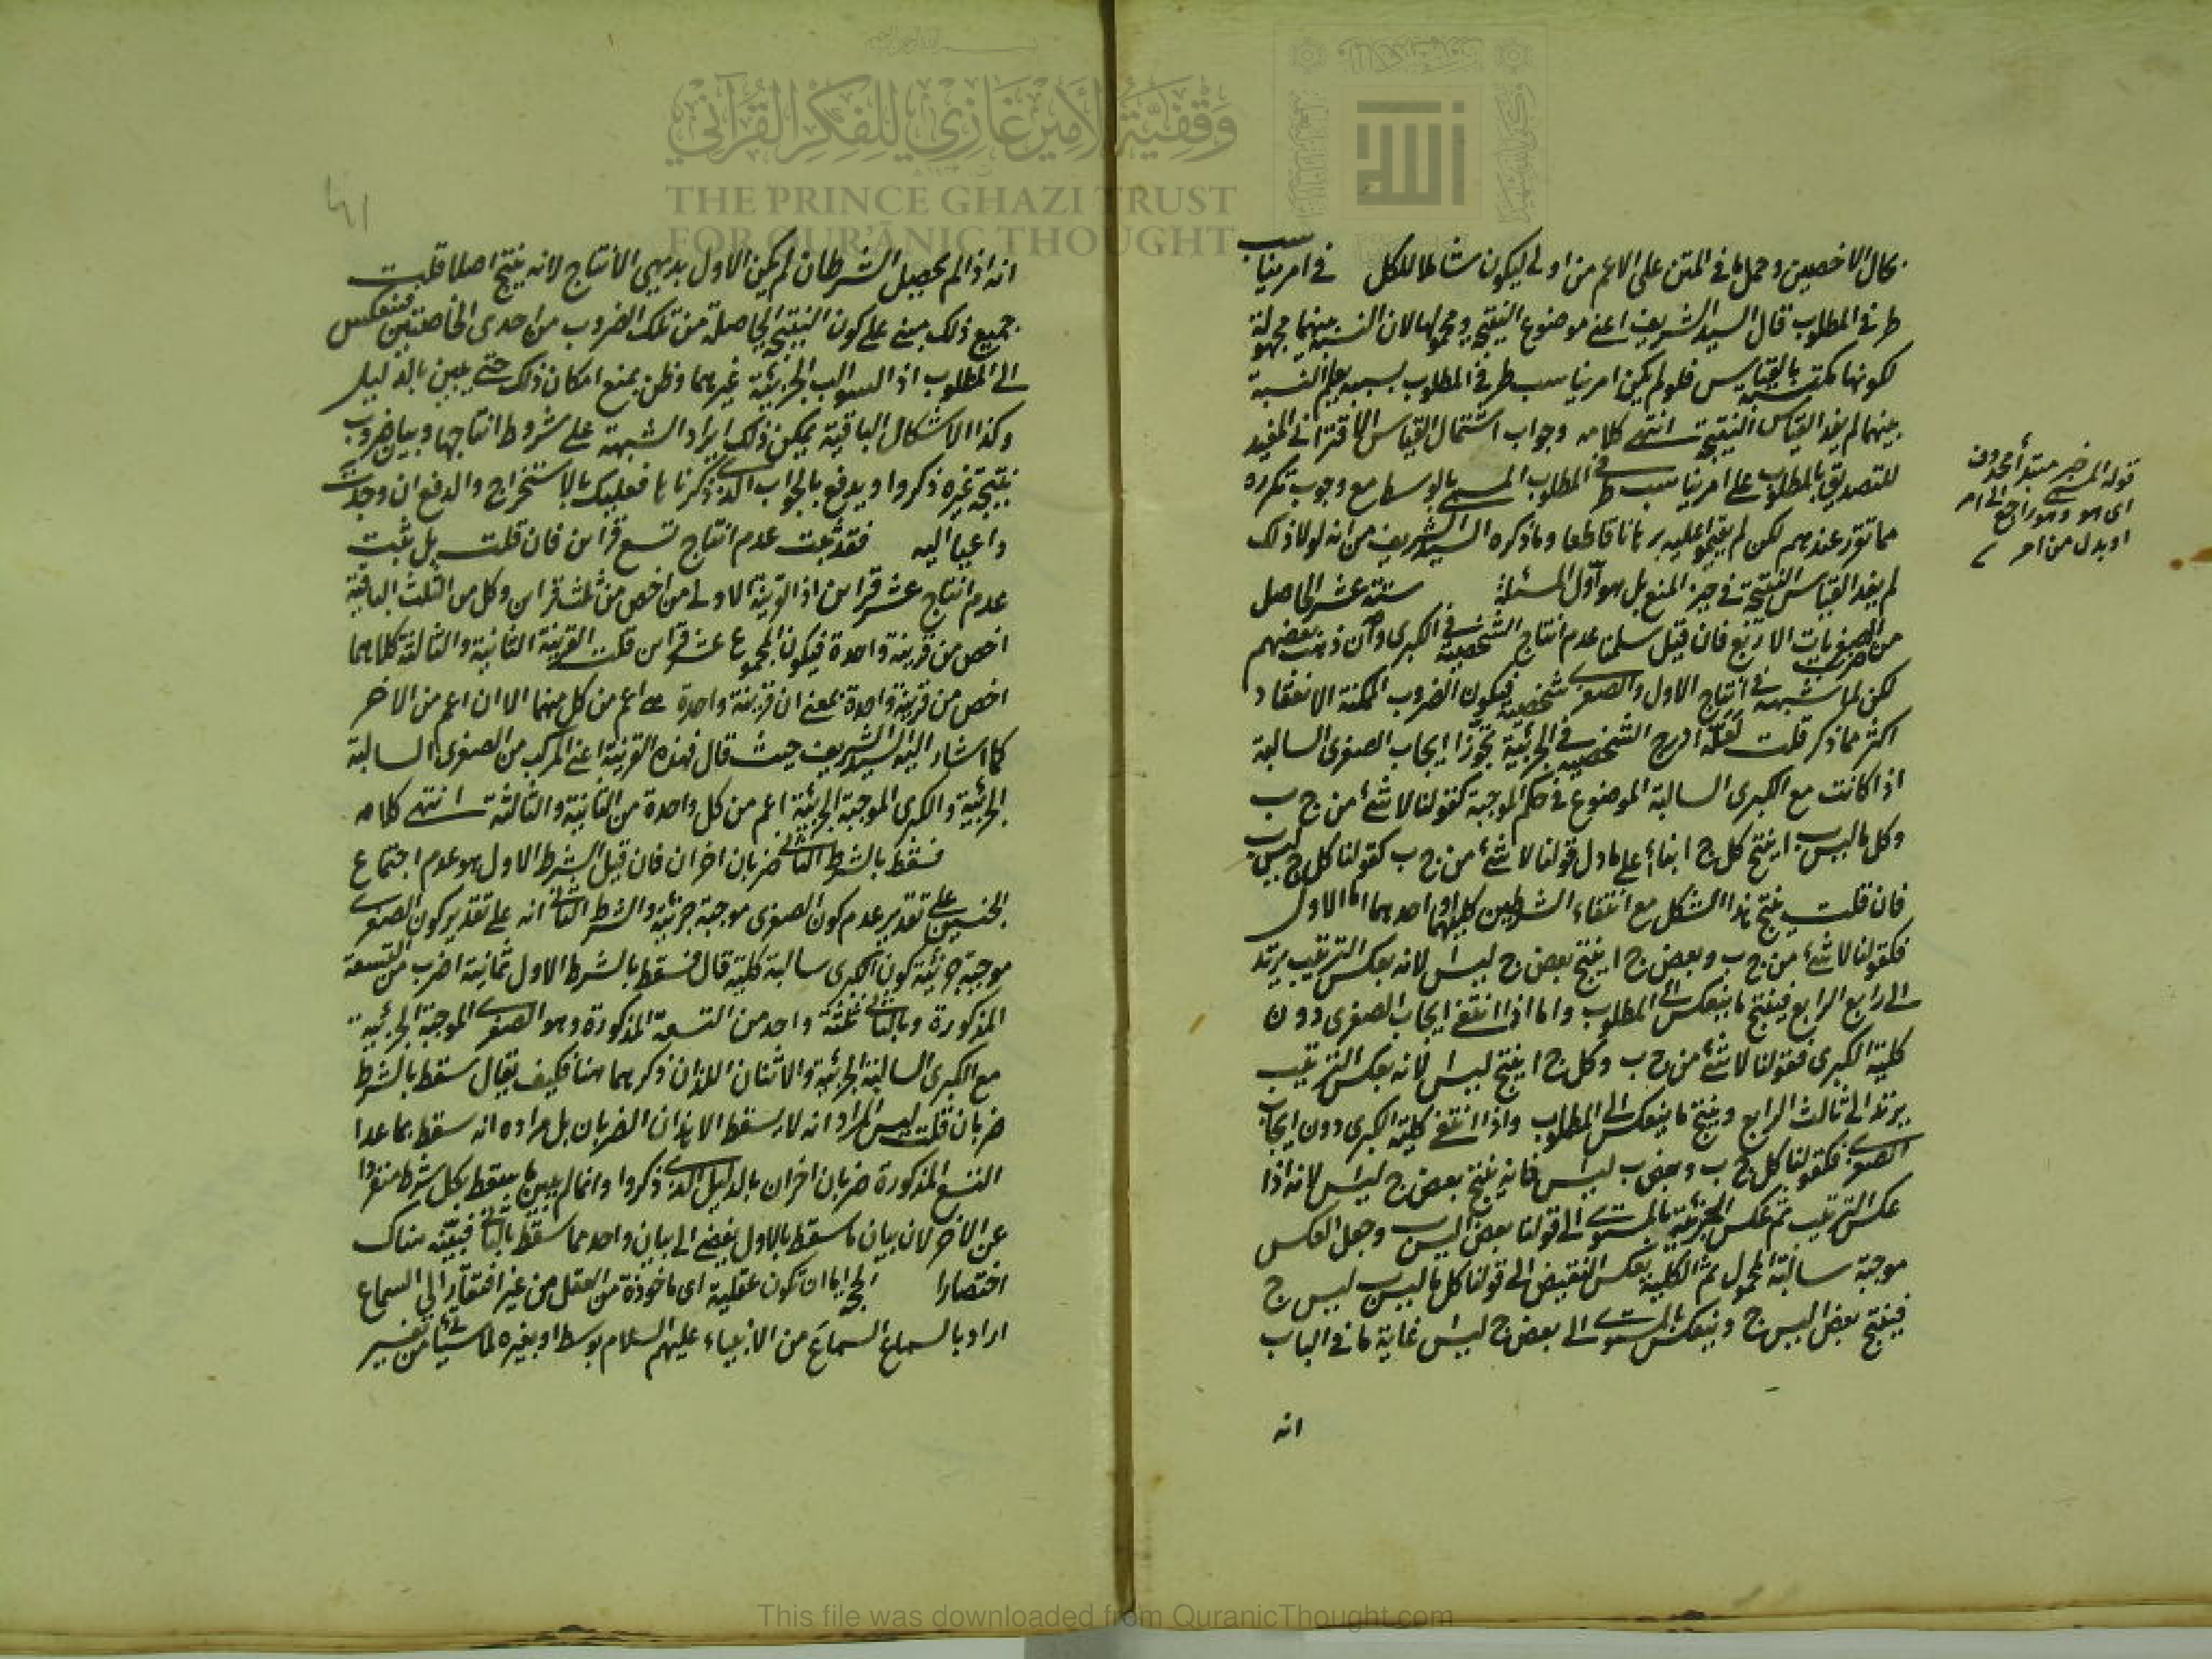 بكمال الاخصيين وحمل ما في المتن على الاعم من اولى ليكون شاملا للكل في امر يناسب
طرفي المطلوب قال السيد الشريف اعني موضوع النتيجة ومحمولها لان النسبة بينهما مجهولة
لكونها مكتسبة بالقياس فلو لم يكن امر يناسب طرفي المطلوب بسببه يعلم النسبة
بينهما لم يفد القياس النتيجة انتهى كلامه وجواب اشتمال القياس الاقتراني المفيد
للتصديق بالمطلوب على امر يناسب طرفي المطلوب المسمى بالوسط مع وجوب تكرره
مما تقرر عندهم لكن لم يقيموا عليه برهانا قاطعا وما ذكره السيد الشريف من انه لولا ذلك
لم يفد القياس النتيجة في حيز المنع بل هو اول المسئلة ستة عشر الحاصل
من ضرب الصغريات الاربع فان قيل سلمنا عدم انتاج الشخصية في الكبرى وان ذهب بعضهم
لكن لا شبهة في انتاج الاول والصغرى شخصية فيكون الضروب الممكنة الانعقاد
اكثر مما ذكر قلت لعله ادرج الشخصية في الجزئية تجوزا ايجاب الصغرى السالبة
اذا كانت مع الكبرى السالبة الموضوع في حكم الموجبة كقولنا لا شئ من ج ب
وكل ما ليس ب ا ينتج كل ج ا بناء على ما دل قولنا لا شئ من ج ب كقولنا كل ج ليس ب
فان قلت ينتج هذا الشكل مع انتفاء الشرطين كليهما او احدهما اما الاول
فكقولنا لا شئ من ج ب وبعض ج ا ينتج بعض ج ليس ا لانه بعكس الترتيب يرتد
الى رابع الرابع فينتج ما ينعكس الى المطلوب واما اذا انتفى ايجاب الصغرى دون
كلية الكبرى فقولنا لا شئ من ج ب وكل ج ا ينتج ليس ا لانه بعكس الترتيب
يرتد الى ثالث الرابع وينتج ما ينعكس الى المطلوب واذا انتفى كلية الكبرى دون ايجاب
الصغرى فكقولنا كل ج ب وبعض ب ليس ا فانه ينتج بعض ج ليس ا لانه اذا
عكس الترتيب ثم عكس الجزئية بالمستوى الى قولنا بعض اليس ب وجعل العكس
موجبة سالبة المحمول ثم الكلية بعكس النقيض الى قولنا كل ما ليس ب ليس ج
فينتج بعض اليس ج وينعكس بالمستوى الى بعض ج ليس ا غاية ما في الباب
انه
قوله المسمى خبر مبتدأ محذوف
اى هو وهو راجع الى امر
او بدل من امر
انه اذا لم يحصل الشرطان لم يكن الاول بديهي الانتاج لانه ينتج اصلا قلت
جميع ذلك مبنى على كون النتيجة الحاصلة من تلك الضروب من احدى الخاصتين فتنعكس
الى المطلوب اذ السوالب الجزئية غيرهما وظن يمنع امكان ذلك حتى يبين بالدليل
وكذا الاشكال الباقية يمكن ذلك ايراد الشبهة على شروط انتاجها وبيان ضروب
نتيجة غيره ذكروا ويدفع بالجواب الذى ذكرنا ما فعليك بالاستخراج والدفع ان وجدت
داعيا اليه فقد ثبت عدم انتاج تسع قرائن فان قلت بل ثبت
عدم انتاج عشر قرائن اذ القرينة الاولى من اخص من ثلث قرائن وكل من الثلث الباقية
اخص من قرينة واحدة فيكون المجموع عشر قرائن قلت القرينة الثانية والثالثة كلاهما
اخص من قرينة واحدة بمعنى ان قرينة واحدة هى اعم من كل منهما الا ان اعم من الاخر
كما اشار اليه السيد الشريف حيث قال فهذه القرينة اعنى المركب من الصغرى السالبة
الجزئية والكبرى الموجبة الجزئية اعم من كل واحدة من الثانية والثالثة انتهى كلامه
فسقط بالشرط الثاني ضربان اخران فان قيل الشرط الاول هو عدم اجتماع
الخستين على تقدير عدم كون الصغرى موجبة جزئية والشرط الثاني انه على تقدير كون الصغرى
موجبة جزئية كون الكبرى سالبة كلية قال فسقط بالشرط الاول ثمانية اضرب من التسعة
المذكورة وبالثاني ثلثة واحد من التسعة المذكورة وهو الصغرى الموجبة الجزئية
مع الكبرى السالبة الجزئية والاثنان اللذان ذكرهما هنا فكيف يقال سقط بالشرط
ضربان قلت ليس المراد انه لا يسقط الا هذان الضربان بل مراده انه سقط بما عدا
التسع المذكورة ضربان اخران بالدليل الذى ذكروا وانما لم يبين ما يسقط بكل شرط منفردا
عن الاخر لان بيان ما سقط بالاول يفضى الى بيان واحد مما سقط بالثاني فبيّنه هناك
اختصارا الحجة اما ان تكون عقلية اى ماخوذة من العقل من غير افتقار الى السماع
اراد بالسماع السماع من الانبياء عليهم السلام بوسط او بغيره لما سيأتى من تفسير
وقفية الأمير غازي للفكر القرآني
THE PRINCE GHAZI TRUST
FOR QUR'ĀNIC THOUGHT
This file was downloaded from QuranicThought.com